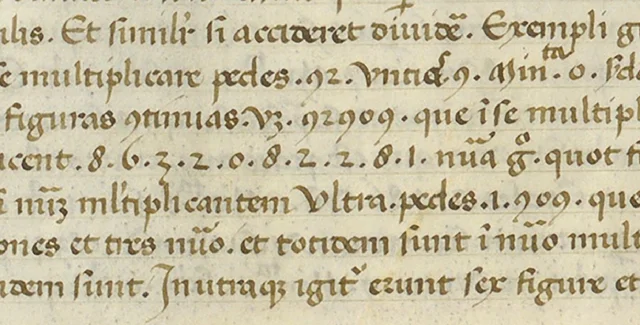 ilis. Et simil'r si accideret diuidē. Exempli g
se multiplicare pedes .92. vntias 9. Min.ta 0. Scd
figuras ꝯtinuas. vꝫ. 92909. que ī se multipl
ucent. 8. 6. 3. 2. 0. 8. 2. 2. 8. 1. nūa gͦ. quot fi
ī nūꝫ ml'tiplicantem Vltra .pedes .1. 909. que
ones et tres nūo. et totidem sunt ī nūo mult
idem sunt. In utraqꝫ igit' erunt sex figure et